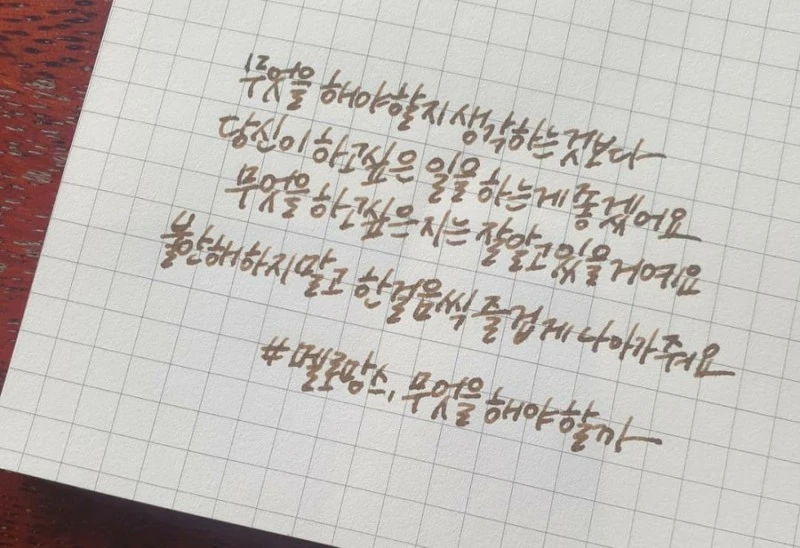 무엇을 해야할지 생각하는것보다
당신이 하고싶은 일을 하는게 좋겠어요
무엇을 하고싶은지는 잘알고있을거예요
불안해하지말고 한걸음씩 즐겁게 나아가줘요
#멜로망스, 무엇을 해야 할까